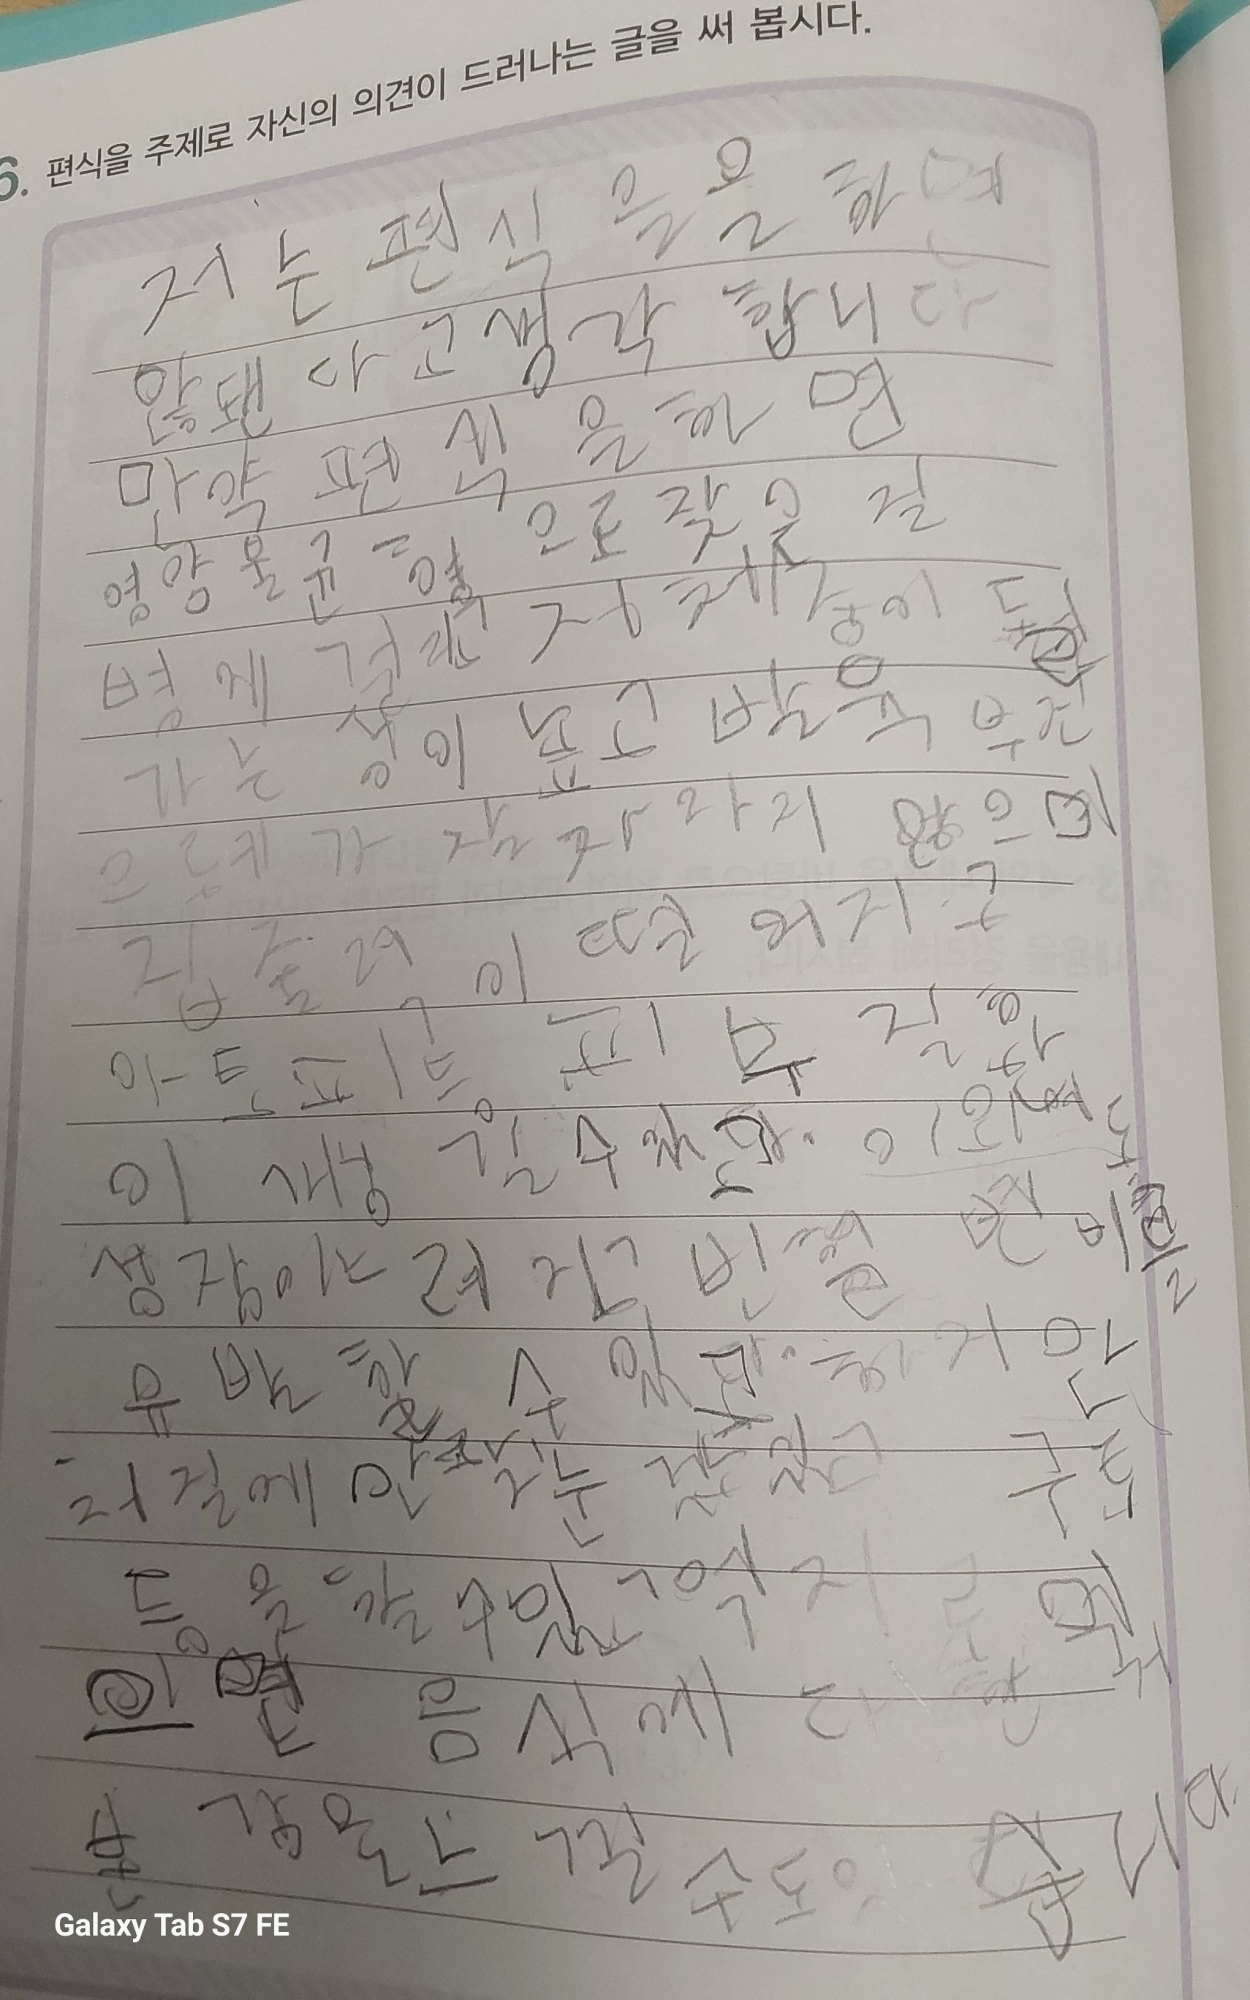 6. 편식을 주제로 자신의 의견이 드러나는 글을 써 봅시다.
저는 편식 을 하면
않됀다고생각 합니다
만약 편식을하면
영양불균형으로 잦은 질
병에 걸 저체중이 될
가능성이 높고 발육 부진
으로키가 잘자라지 않으며
집중력이 떨어지구
아토피등 피부 질환
이 생길수 있다. 이외에도
성장이느려지고 빈혈 변비를
유발할 수 있다. 하지만
체질에 안 맞는 구토
등을 할수있고 억지로 먹
으면 음식에 대한
안 느낄 수도 습니다
Galaxy Tab S7 FE